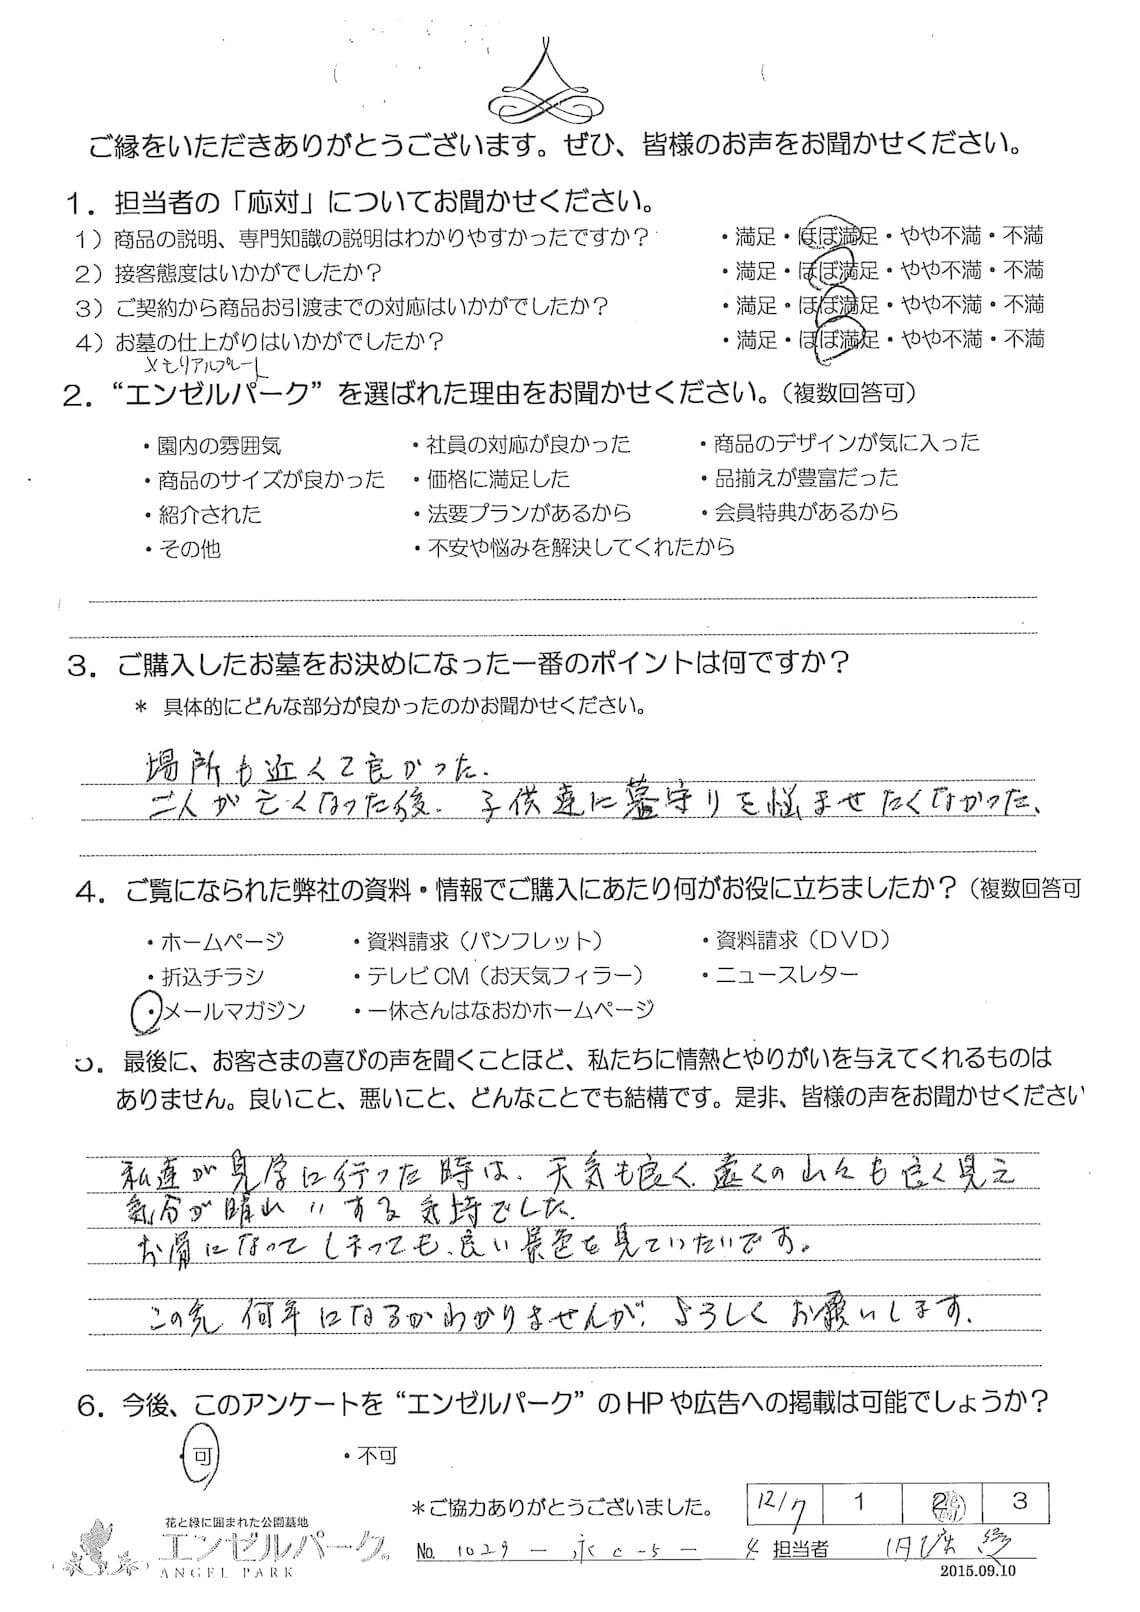 ご縁をいただきありがとうございます。ぜひ、皆様のお声をお聞かせください。
1．担当者の「応対」についてお聞かせください。
1）商品の説明、専門知識の説明はわかりやすかったですか？ ・満足・ほぼ満足・やや不満・不満
2）接客態度はいかがでしたか？ ・満足・ほぼ満足・やや不満・不満
3）ご契約から商品お引渡までの対応はいかがでしたか？ ・満足・ほぼ満足・やや不満・不満
4）お墓の仕上がりはいかがでしたか？ ・満足・ほぼ満足・やや不満・不満
メモリアルプレート
2．“エンゼルパーク”を選ばれた理由をお聞かせください。（複数回答可）
・園内の雰囲気 ・社員の対応が良かった ・商品のデザインが気に入った
・商品のサイズが良かった ・価格に満足した ・品揃えが豊富だった
・紹介された ・法要プランがあるから ・会員特典があるから
・その他 ・不安や悩みを解決してくれたから
3．ご購入したお墓をお決めになった一番のポイントは何ですか？
＊ 具体的にどんな部分が良かったのかお聞かせください。
場所も近くて良かった.
二人が亡くなった後. 子供達に墓守りを悩ませたくなかった、
4．ご覧になられた弊社の資料・情報でご購入にあたり何がお役に立ちましたか？（複数回答可
・ホームページ ・資料請求（パンフレット） ・資料請求（DVD）
・折込チラシ ・テレビCM（お天気フィラー） ・ニュースレター
・メールマガジン ・一休さんはなおかホームページ
5．最後に、お客さまの喜びの声を聞くことほど、私たちに情熱とやりがいを与えてくれるものは
ありません。良いこと、悪いこと、どんなことでも結構です。是非、皆様の声をお聞かせください
私達が見学に行った時は、天気も良く、遠くの山々も良く見え
気分が晴れ〃する気持でした.
お骨になってしまっても、良い景色を見ていたいです。
この先 何年になるかわかりませんが、よろしくお願いします.
6．今後、このアンケートを“エンゼルパーク”のHPや広告への掲載は可能でしょうか？
・可 ・不可
＊ご協力ありがとうございました。 12/7 1 2 3
花と緑に囲まれた公園墓地
エンゼルパーク®
ANGEL PARK
No. 1029 － 永 c－5－ 4 担当者
2015.09.10